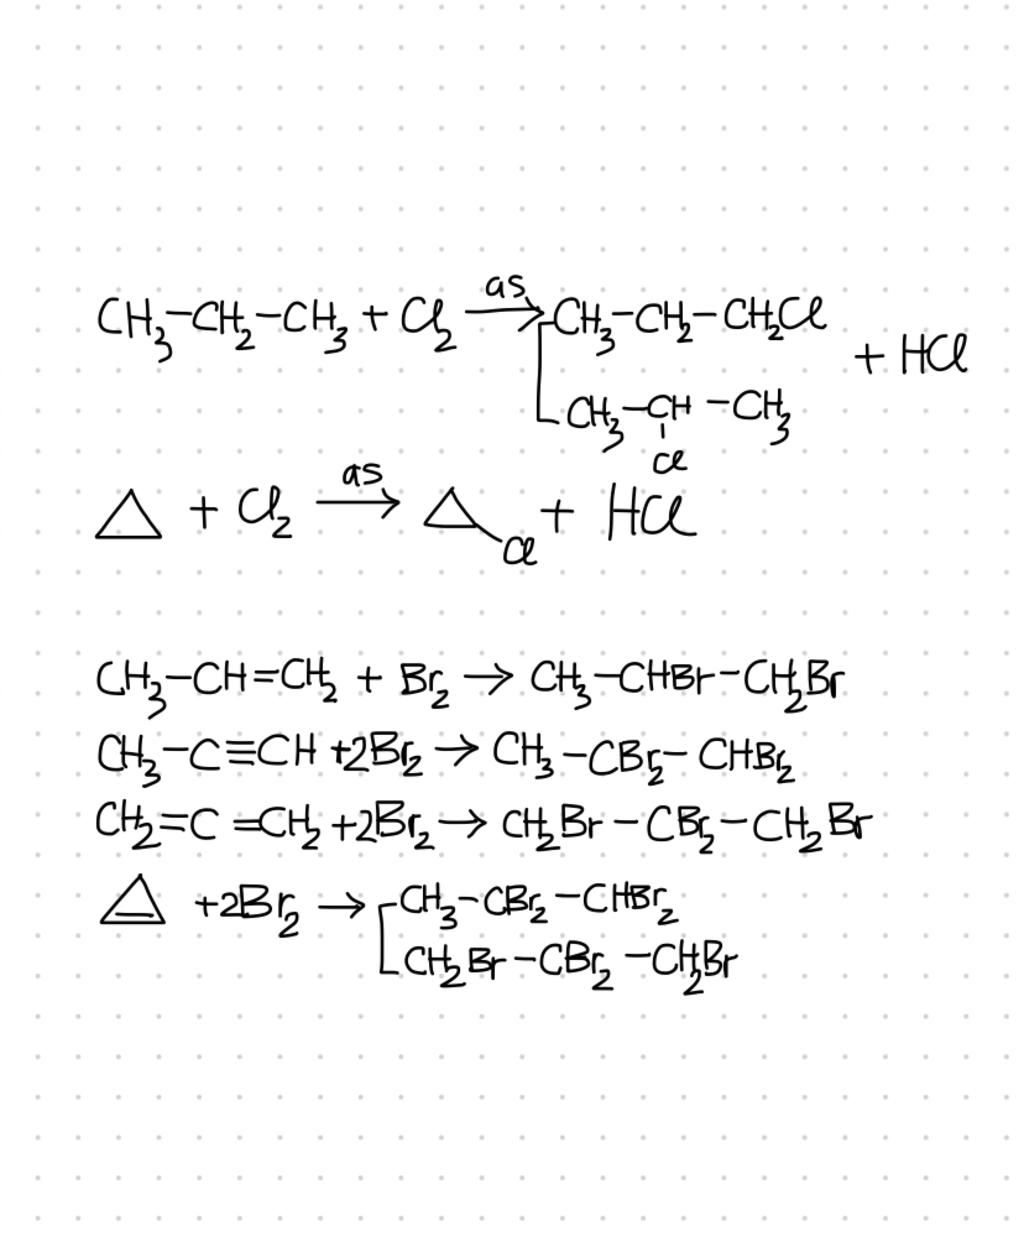 CH₃-CH₂-CH₃ + Cl₂ as→ CH₃-CH₂-CH₂Cl
+ HCl
CH₃-CH-CH₃
Cl
+ Cl₂ as→ Cl + HCl
CH₃-CH=CH₂ + Br₂ → CH₃-CHBr-CH₂Br
CH₃-C≡CH +2Br₂ → CH₃-CBr₂-CHBr₂
CH₂=C=CH₂+2Br₂→ CH₂Br-CBr₂-CH₂Br
+2Br₂ → CH₃-CBr₂-CHBr₂
CH₂Br-CBr₂-CH₂Br